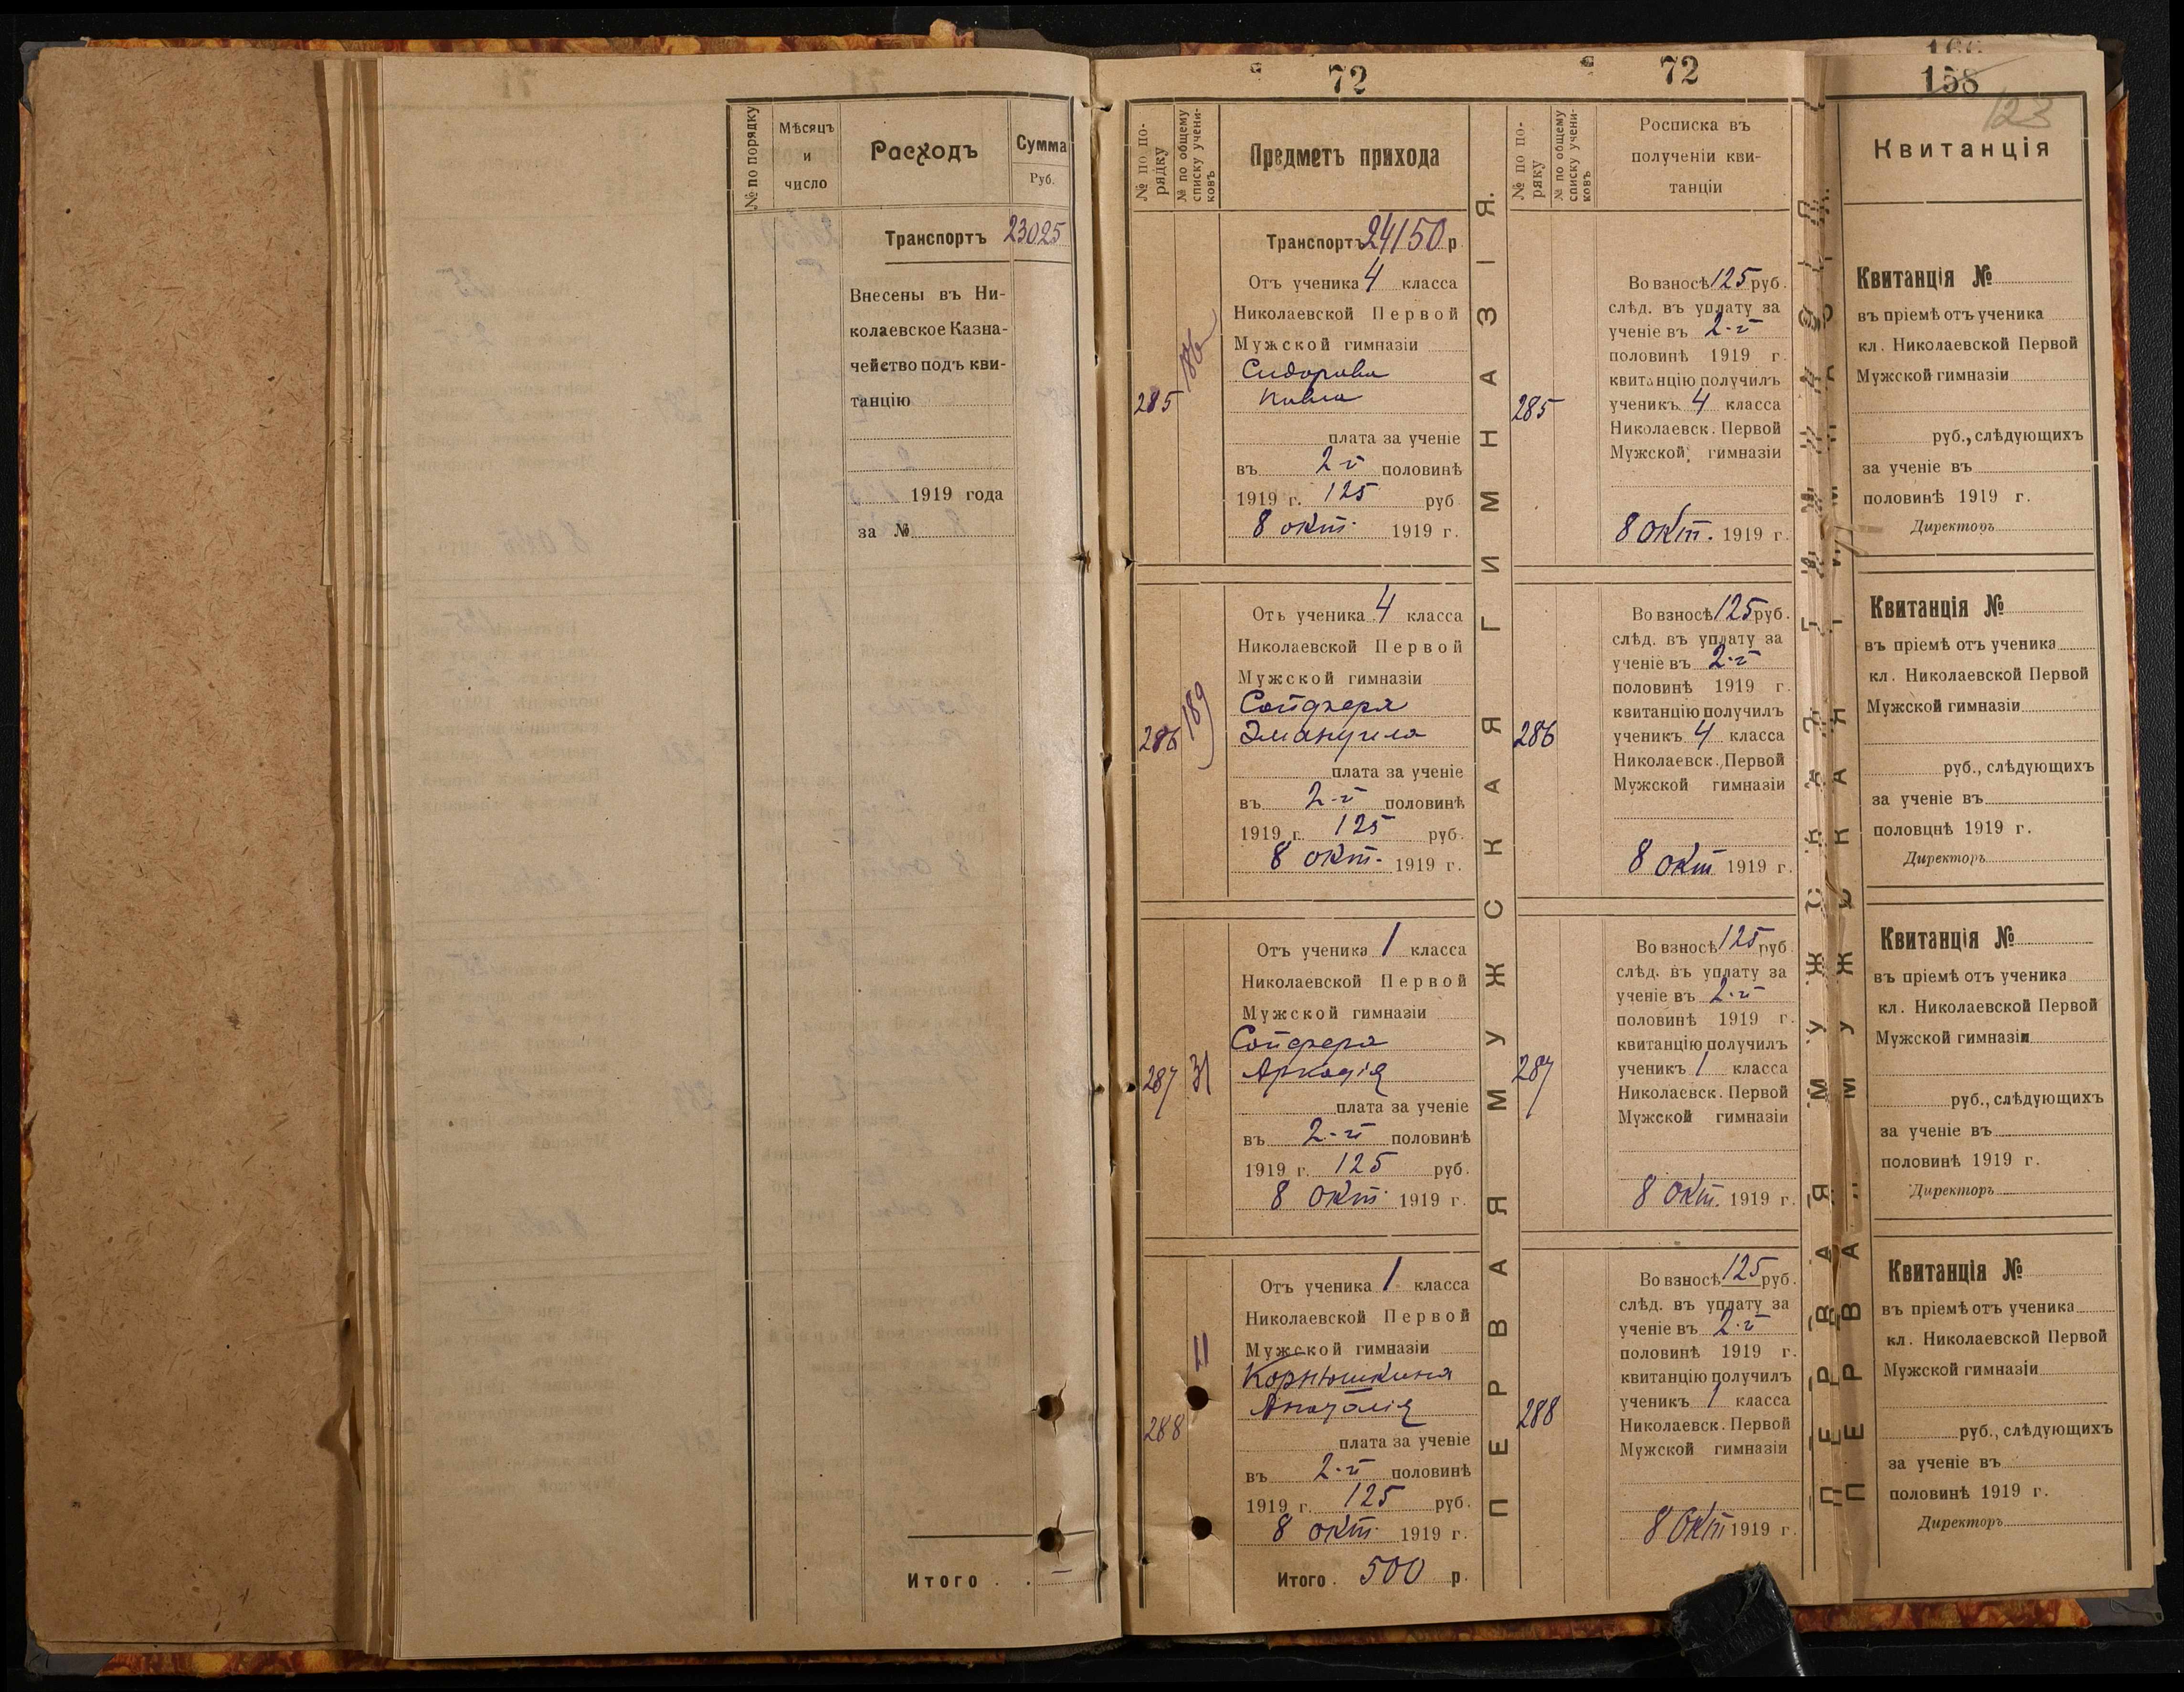 № по порядку
Мѣсяцъ
и
число
Расходъ
Сумма
Руб.
Транспортъ 23025
Внесены въ Ни-
колаевское Казна-
чейство подъ кви-
танцію
1919 года
за №
Итого . . —
72
№ по по-
рядку
№ по общему
списку учени-
ковъ
Предметъ прихода
Транспортъ 24150 р
285
186
Отъ ученика 4 класса
Николаевской Первой
Мужской гимназіи
Сидорова
Павла
плата за ученіе
въ 2-й половинѣ
1919 г. 125 руб
8 окт. 1919 г.
286
189
Отъ ученика 4 класса
Николаевской Первой
Мужской гимназіи
Сойфера
Эмануила
плата за ученіе
въ 2-й половинѣ
1919 г. 125 руб.
8 окт. 1919 г.
287
31
Отъ ученика 1 класса
Николаевской Первой
Мужской гимназіи
Сойфера
Аркадія
плата за ученіе
въ 2-й половинѣ
1919 г. 125 руб.
8 окт. 1919 г.
288
11
Отъ ученика 1 класса
Николаевской Первой
Мужской гимназіи
Корнюшкина
Анатолія
плата за ученіе
въ 2-й половинѣ
1919 г. 125 руб.
8 окт. 1919 г.
Итого . 500 р.
ПЕРВАЯ МУЖСКАЯ ГИМНАЗІЯ.
72
№ по по-
ряку
№ по общему
списку учени-
ковъ
Росписка въ
полученіи кви-
танціи
285
Во взносѣ 125 руб.
слѣд. въ уплату за
ученіе въ 2-й
половинѣ 1919 г.
квитанцію получилъ
ученикъ 4 класса
Николаевск. Первой
Мужской гимназіи
8 окт. 1919 г.
286
Во взносѣ 125 руб.
слѣд. въ уплату за
ученіе въ 2-й
половинѣ 1919 г.
квитанцію получилъ
ученикъ 4 класса
Николаевск. Первой
Мужской гимназіи
8 окт 1919 г.
287
Во взносѣ 125 руб.
слѣд. въ уплату за
ученіе въ 2-й
половинѣ 1919 г.
квитанцію получилъ
ученикъ 1 класса
Николаевск. Первой
Мужской гимназіи
8 окт. 1919 г.
288
Во взносѣ 125 руб.
слѣд. въ уплату за
ученіе въ 2-й
половинѣ 1919 г.
квитанцію получилъ
ученикъ 1 класса
Николаевск. Первой
Мужской гимназіи
8 окт 1919 г.
158
123
Квитанція
Квитанція №
въ пріемѣ отъ ученика
кл. Николаевской Первой
Мужской гимназіи
руб., слѣдующихъ
за ученіе въ
половинѣ 1919 г.
Директоръ
Квитанція №
въ пріемѣ отъ ученика
кл. Николаевской Первой
Мужской гимназіи
руб., слѣдующихъ
за ученіе въ
половцнѣ 1919 г.
Директоръ
Квитанція №
въ пріемѣ отъ ученика
кл. Николаевской Первой
Мужской гимназіи
руб., слѣдующихъ
за ученіе въ
половинѣ 1919 г.
Директоръ
Квитанція №
въ пріемѣ отъ ученика
кл. Николаевской Первой
Мужской гимназіи
руб., слѣдующихъ
за ученіе въ
половинѣ 1919 г.
Директоръ